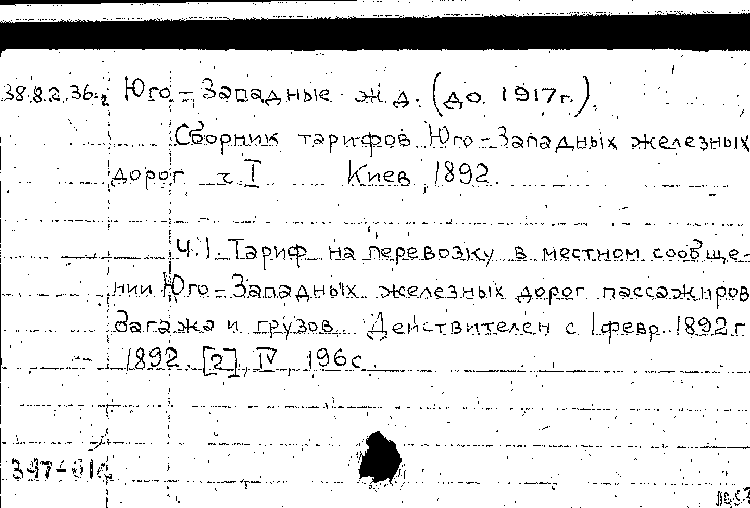 38.8.2.36-2 Юго-Западные ж.д. (до 1917г.).
Сборник тарифов Юго-Западных железных
дорог ч. I Киев, 1892.
Ч.1. Тариф на перевозку в местном сообще-
нии Юго-Западных железных дорог пассажиров
багажа и грузов. Действителен с 1 февр. 1892 г
1892. [2], IV, 196 с.